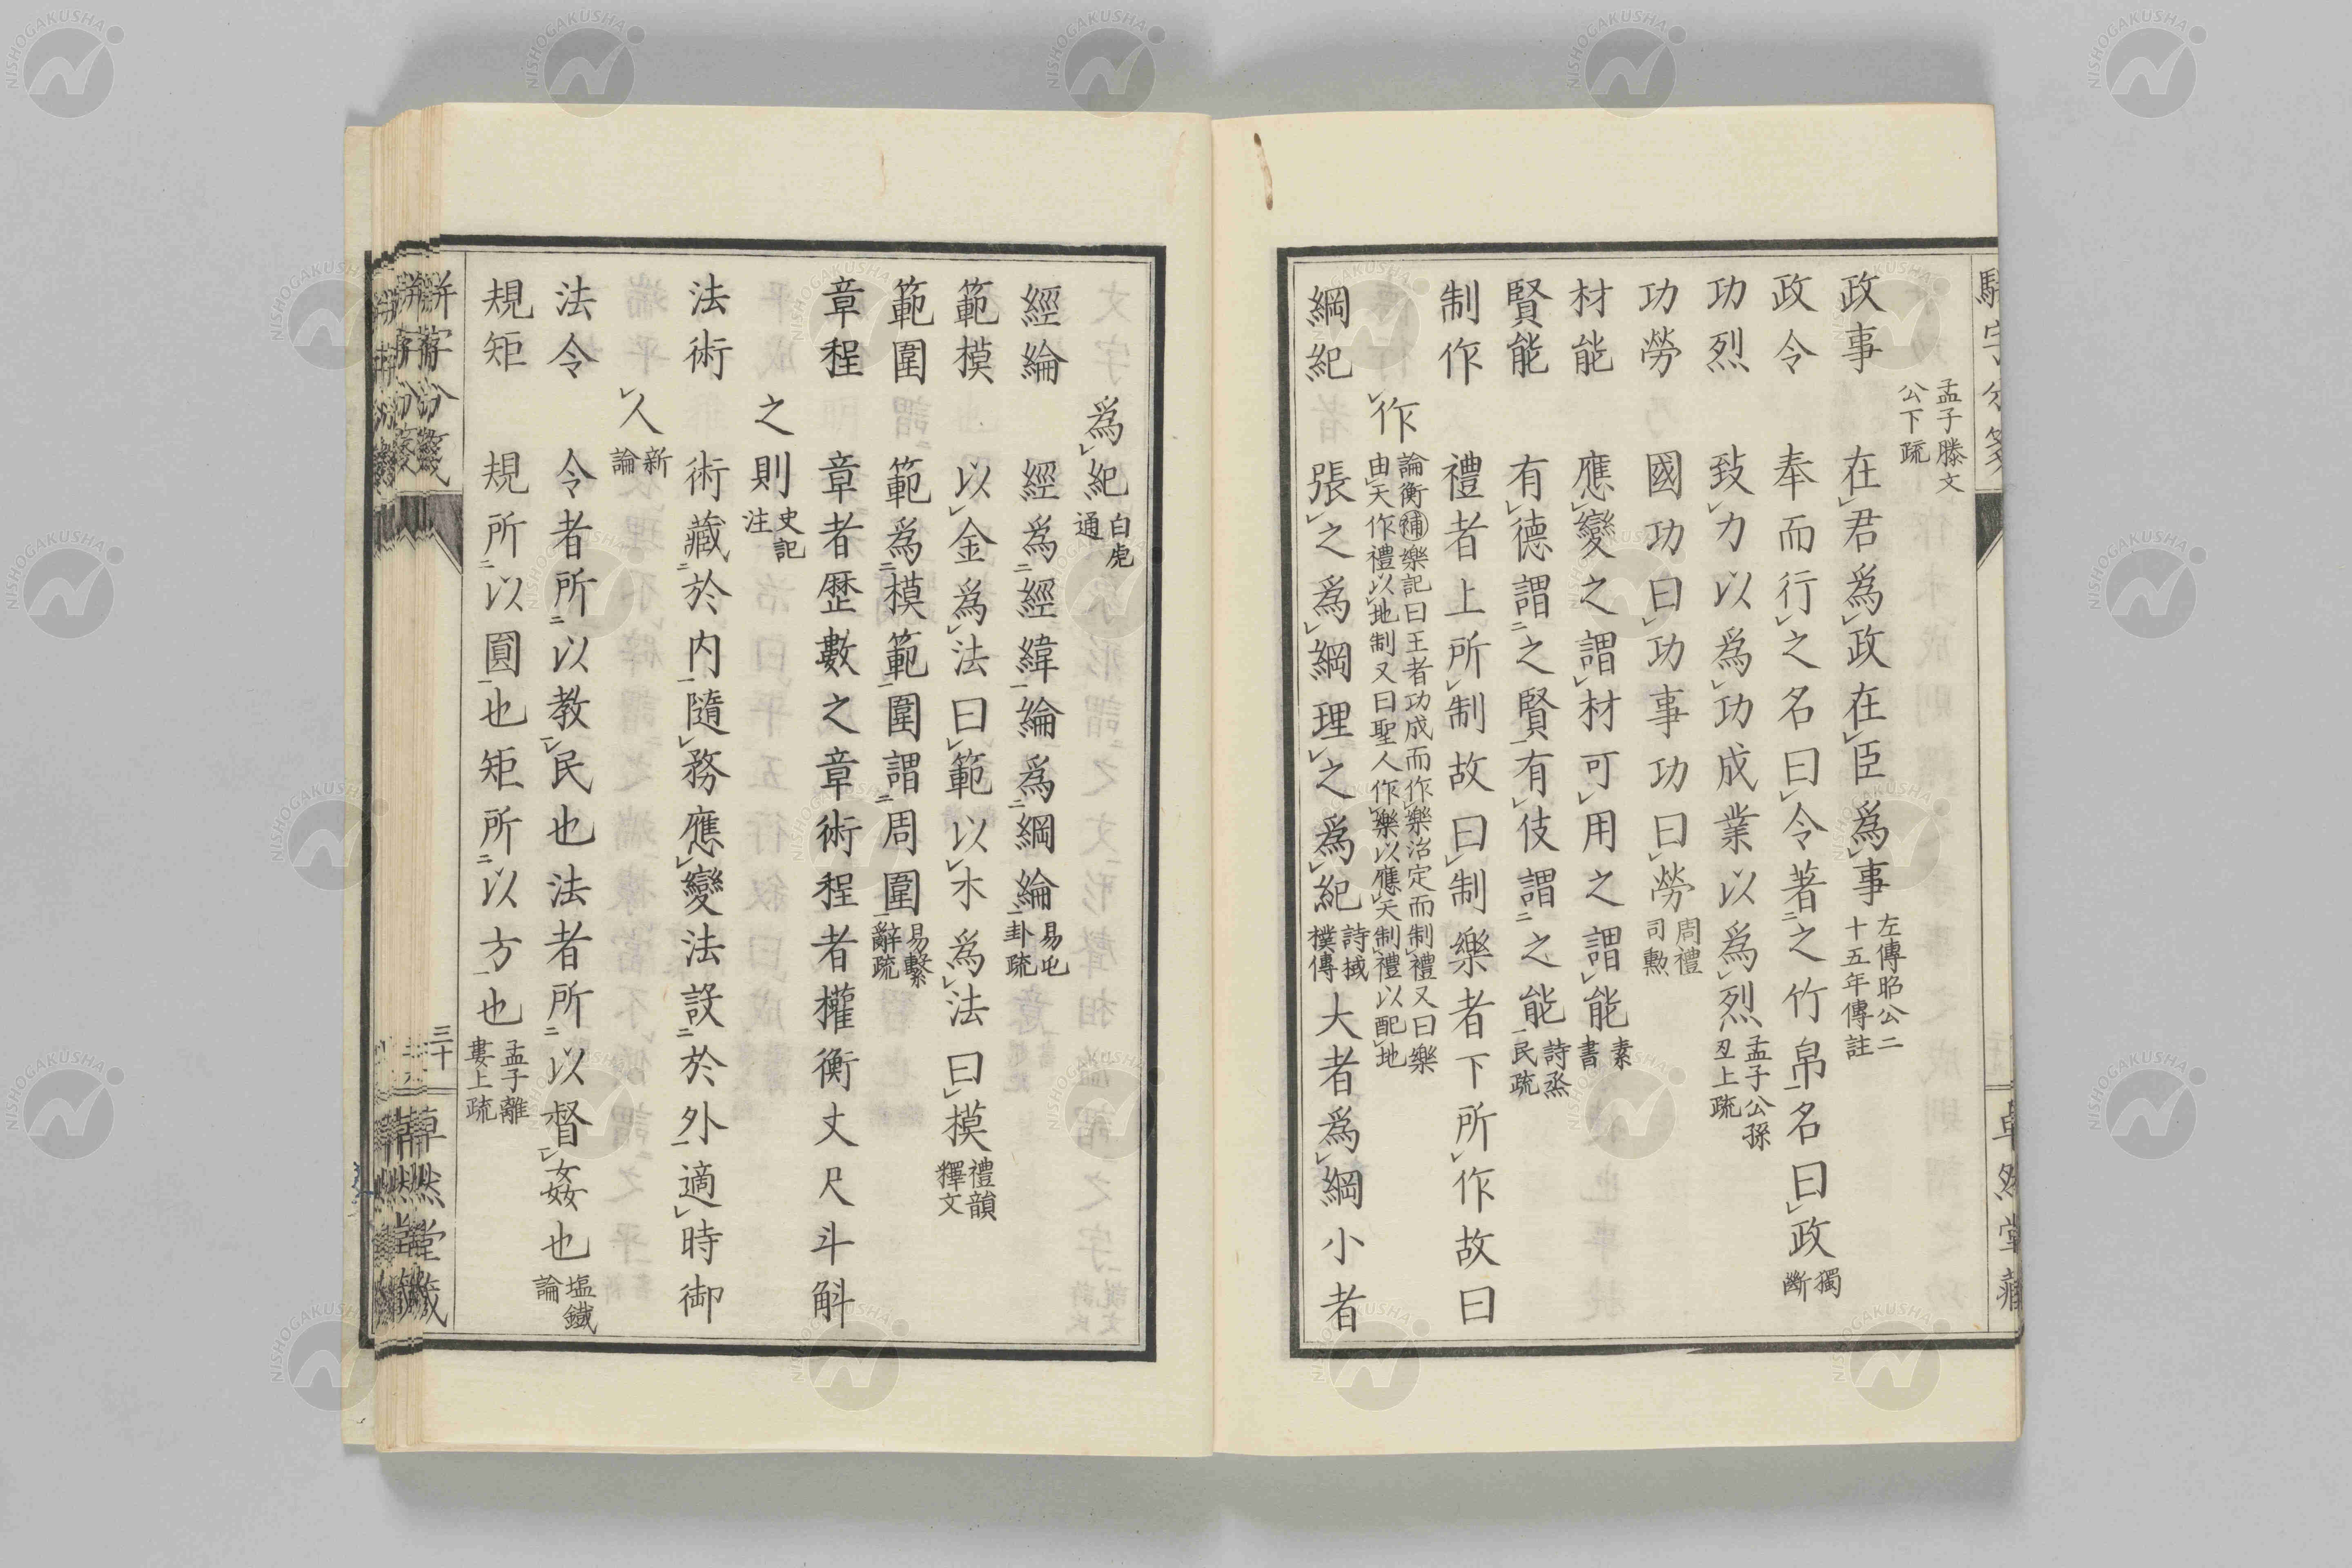 孟子滕文公下疏
政事 在君爲政在臣爲事 左傳昭公二十五年傳註
政令 奉而行之名曰令著之竹帛名曰政 獨斷
功烈 致力以爲功成業以爲烈 孟子公孫丑上疏
功勞 國功曰功事功曰勞 周禮司勲
材能 應變之謂材可用之謂能 素書
賢能 有德謂之賢有伎謂之能 詩烝民疏
制作 禮者上所制故曰制樂者下所作故曰
作 論衡 補 樂記曰王者功成而作樂治定而制禮又曰樂由天作禮以地制又曰聖人作樂以應天制禮以配地
綱紀 張之爲綱理之爲紀 詩棫樸傳 大者爲綱小者
爲紀 白虎通
經綸 經爲經緯綸爲綱綸 易屯卦疏
範模 以金爲法曰範以木爲法曰模 禮韻釋文
範圍 範爲模範圍謂周圍 易繫辭疏
章程 章者歷數之章術程者權衡丈尺斗斛
之則 史記注
法術 術藏於内隨務應變法設於外適時御
人 新論
法令 令者所以教民也法者所以督姦也 塩鐵論
規矩 規所以圓也矩所以方也 孟子離婁上疏
三十
NISHOGAKUSHA